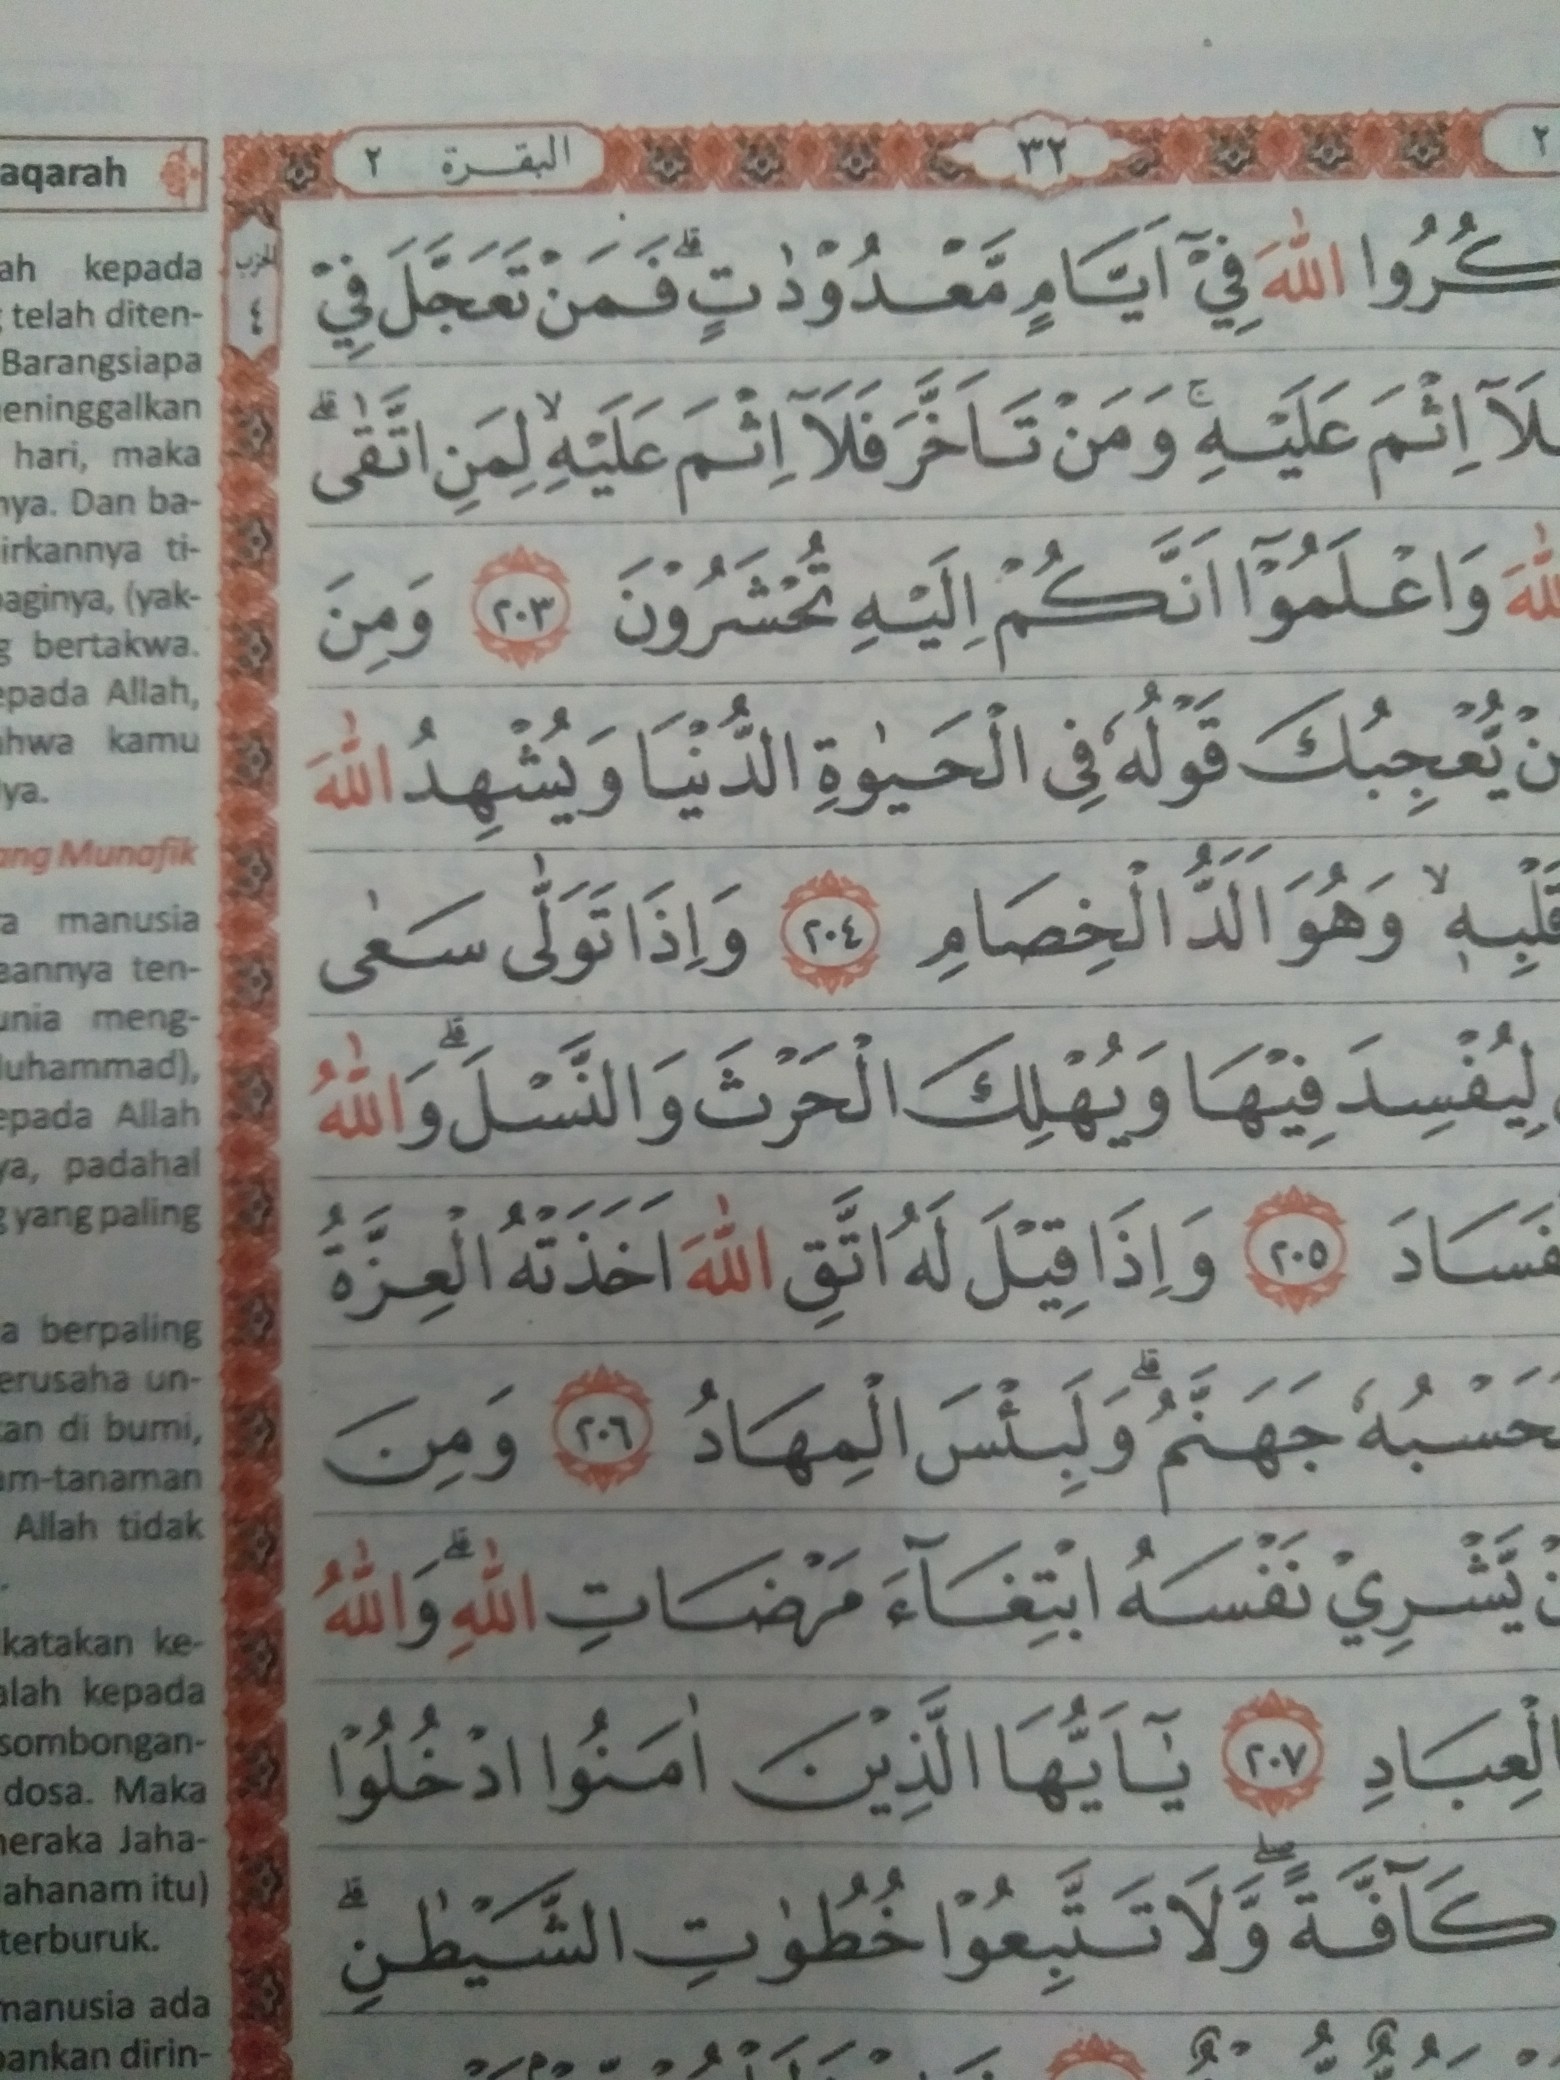 aqarah
البقرة ٢
٣٢
٢
الحزب
٤
ah kepada
telah diten-
Barangsiapa
eninggalkan
hari, maka
nya. Dan ba-
irkannya ti-
baginya, (yak-
g bertakwa.
epada Allah,
ahwa kamu
ya.
ang Munafik
ra manusia
aannya ten-
unia meng-
Muhammad),
epada Allah
ya, padahal
g yang paling
a berpaling
erusaha un-
kan di bumi,
am-tanaman
Allah tidak
katakan ke-
alah kepada
sombongan-
dosa. Maka
neraka Jaha-
ahanam itu)
terburuk.
manusia ada
bankan dirin-
كُرُوا اللّٰهَ فِيْٓ اَيَّامٍ مَّعْدُوْدٰتٍۗ فَمَنْ تَعَجَّلَ فِيْ
لَآ اِثْمَ عَلَيْهِۚ وَمَنْ تَاَخَّرَ فَلَآ اِثْمَ عَلَيْهِۙ لِمَنِ اتَّقٰىۗ
للّٰهَ وَاعْلَمُوْٓا اَنَّكُمْ اِلَيْهِ تُحْشَرُوْنَ ٢٠٣ وَمِنَ
نْ يُّعْجِبُكَ قَوْلُهٗ فِى الْحَيٰوةِ الدُّنْيَا وَيُشْهِدُ اللّٰهَ
قَلْبِهٖۙ وَهُوَ اَلَدُّ الْخِصَامِ ٢٠٤ وَاِذَا تَوَلّٰى سَعٰى
لِيُفْسِدَ فِيْهَا وَيُهْلِكَ الْحَرْثَ وَالنَّسْلَۗ وَاللّٰهُ
فَسَادَ ٢٠٥ وَاِذَا قِيْلَ لَهُ اتَّقِ اللّٰهَ اَخَذَتْهُ الْعِزَّةُ
حَسْبُهٗ جَهَنَّمُۗ وَلَبِئْسَ الْمِهَادُ ٢٠٦ وَمِنَ
نْ يَّشْرِيْ نَفْسَهُ ابْتِغَاۤءَ مَرْضَاتِ اللّٰهِۗ وَاللّٰهُ
الْعِبَادِ ٢٠٧ يٰٓاَيُّهَا الَّذِيْنَ اٰمَنُوا ادْخُلُوْا
كَاۤفَّةًۖ وَّلَا تَتَّبِعُوْا خُطُوٰتِ الشَّيْطٰنِۗ